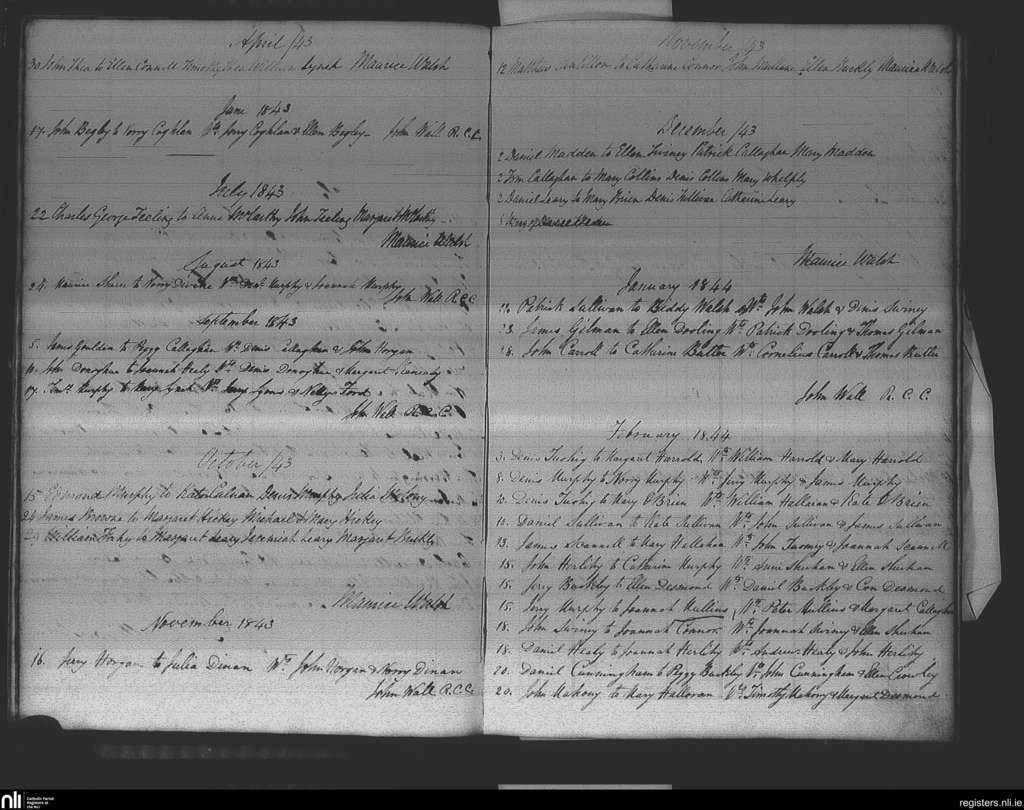 April /43
30 John Shea to Ellen Connell Timothy Shea William Lynch Maurice Walsh
June 1843
17. John Begley to Norry Coghlan Ws. Jerry Coghlan & Ellen Begley John Wall R.C.C.
July 1843
22 Charles George Teeling to Anne McCarthy John Teeling Margaret
Maurice Walsh
August 1843
24. Maurice to Norry Ws. Murphy & Joannah Murphy
John Wall R.C.C.
September 1843
5. James Goulden to Peggy Callaghan Ws. Denis Callaghan & John Horgan
10. John Donoghue to Joannah Healy Ws. Denis Donoghue & Margaret Kennedy
17. Timy. Murphy to Mary Lynch Ws. Lyons & Nelly Ford
John Wall R.C.C.
October /43
15 Edmond Murphy to Denis Murphy Julia
24 James Browne to Margaret Hickey Michael & Mary Hickey
William to Margaret Leary Jeremiah Leary Margaret Buckly
Maurice Walsh
November 1843
16. Jerry Horgan to Julia Dinan Ws. John Horgan & Norry Dinan
John Wall R.C.C.
November /43
12 Matthew to Catharine Connor John Ellen Buckly Maurice Walsh
December /43
2 Daniel Madden to Ellen Swiney Patrick Callaghan Mary Madden
2 Tim Callaghan to Mary Collins Denis Collins Mary Whelply
2 Daniel Leary to Mary Brien Denis Sullivan Catharine Leary
Maurice Walsh
January 1844
Patrick Sullivan to Biddy Walsh Ws. John Walsh & Dinis Swiney
23. James Gilman to Ellen Dorling Ws. Patrick Dorling & Thomas Gilman
John Carroll to Catharine Butler Ws. Cornelius Carroll & Thomas Butler
John Wall R.C.C.
February 1844
3. Denis Tuohig to Margaret Harrold Ws. William Harrold & Mary Harrold
8. Denis Murphy to Norry Murphy Ws. Jerry Murphy & James Murphy
10. Denis Tuohy to Mary O'Brien Ws. William Halloran & Kate O'Brien
10. Daniel Sullivan to Kate Sullivan Ws. John Sullivan & James Sullivan
13. James Scannell to Mary Hallahan Ws. John Twomey & Joannah Scannell
15. John Herlihy to Catharine Murphy Ws. Sheehan & Ellen Sheehan
15. Jerry Buckley to Ellen Desmond Ws. Daniel Buckley & Con Desmond
15. Jerry Murphy to Joannah Mullins Ws. Peter Mullins & Margaret Callaghan
18. John Swiney to Joannah Connor Ws. Joannah Swiney & Ellen Sheehan
18. Daniel Healy to Joannah Herlihy Ws. Andrew Healy & John Herlihy
20. Daniel Cunningham to Peggy Buckley Ws. John Cunningham & Ellen Crowley
20. John Mahony to Mary Halloran Ws. Timothy Mahony & Margaret Desmond
nli Catholic Parish Registers at the NLI
registers.nli.ie